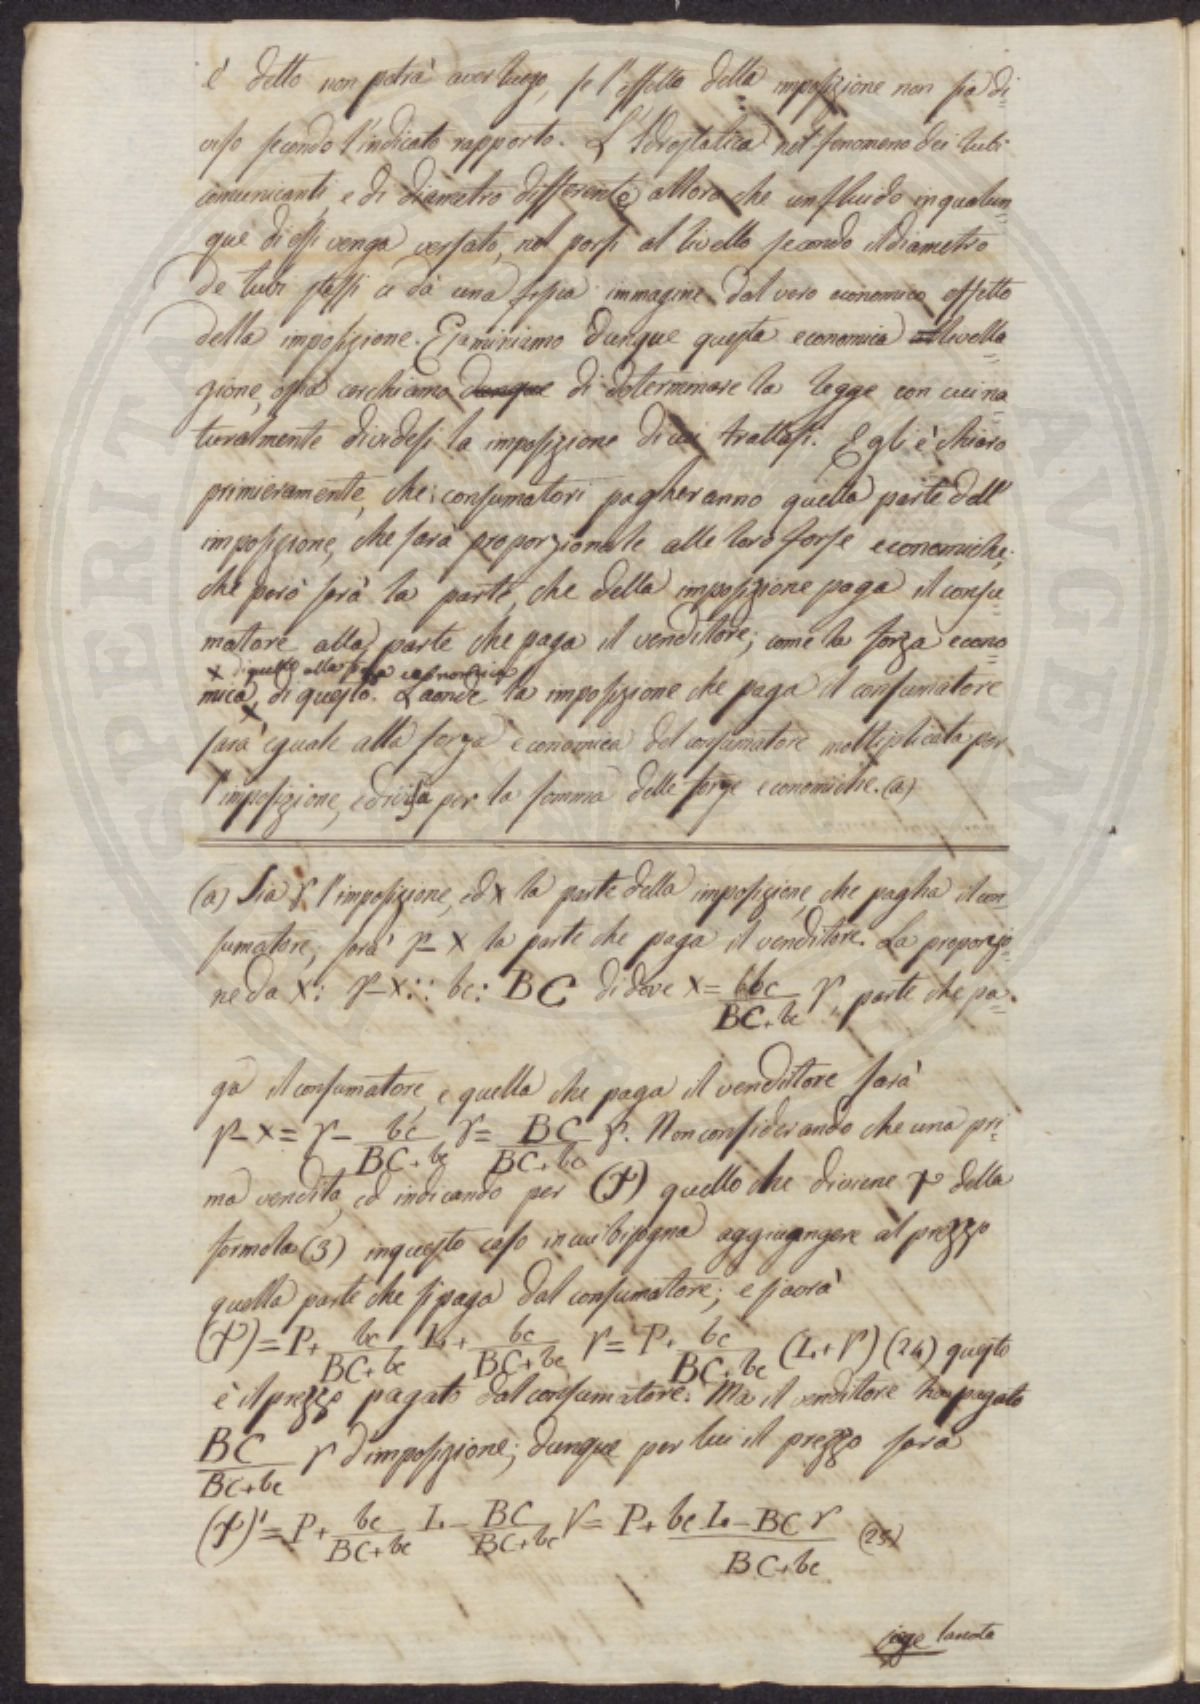 è detto non potrà aver luogo, se l'effetto della imposizione non sia di=
viso secondo l'indicato rapporto. L'Idrostatica nel fenomeno dei tubi
comunicanti e di diametro differente, allora che un fluido in qualun=
que di essi venga versato, nel porsi al livello secondo il diametro
de tubi stessi ci dà una fisica immagine dal vero economico effetto
della imposizione. Esaminiamo dunque questa economica livella=
zione, ossia cerchiamo dunque di determinare la legge con cui na=
turalmente dividesi la imposizione di cui trattasi. Egli è chiaro
primieramente, che i consumatori pagheranno quella parte dell'
imposizione, che sarà proporzionale alle loro forse economiche;
che però sarà la parte, che della imposizione paga il consu=
matore alla parte che paga il venditore, come la forza econo=
x di quello alla forza economica
mica, di questo. Laonde la imposizione che paga il consumatore
sarà eguale alla forza economica del consumatore moltiplicata per
l'imposizione, e divisa per la somma delle forze economiche. (a)
(a) Sia r l'imposizione, ed x la parte della imposizione, che paghia il con=
sumatore, sarà r-x la parte che paga il venditore. La proporzio=
ne da x: r-x:: bc: BC di dove x= bbc/BC+bc r, parte che pa=
ga il consumatore, e quella che paga il venditore sarà
r-x= r- bc/BC+bc r= BC/BC+bc r. Non considerando che una pri=
ma vendita, ed indicando per (p) quello che diviene p della
formola (3) in questo caso in cui bisogna aggiungere al prezzo
quella parte che si paga dal consumatore; e s'avrà
(p)= P+ bc/BC+bc L+ bc/BC+bc r= P+ bc/BC+bc (L+r) (24) questo
è il prezzo pagato dal consumatore. Ma il venditore ha pagato
BC/BC+bc r d'imposizione; dunque per lui il prezzo sarà
(p)'= P+ bc/BC+bc L- BC/BC+bc r= P+ bc L-BC r/BC+bc (25)